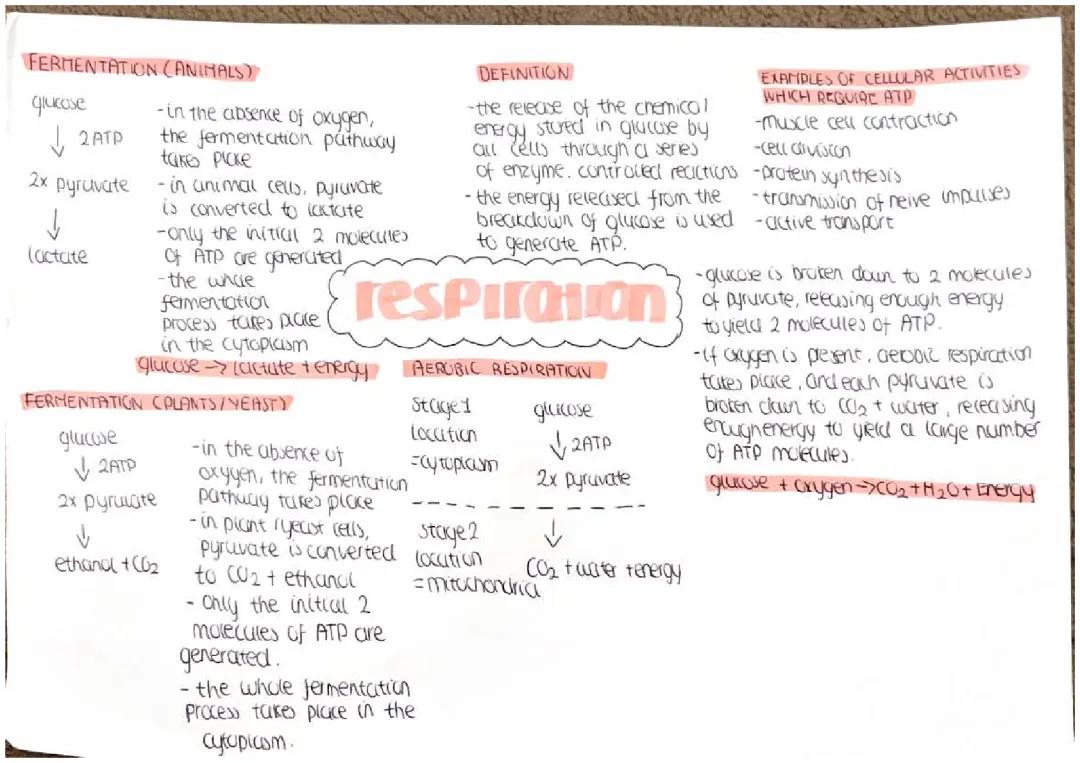 FERMENTATION (ANIMALS)
glucose
↓ 2ATP
2x pyruvate
↓
lactate
-in the absence of oxygen,
the fermentation pathway
takes place
-in animal cells, pyruvate
is converted to lactate
-only the initial 2 molecules
of ATP are generated
-the whole
fermentation
process takes place
in the cytoplasm
glucose -> lactate + energy
DEFINITION
-the release of the chemical
energy stored in glucose by
all cells through a series
of enzyme. controlled reactions
-the energy released from the
breakdown of glucose is used
to generate ATP.
EXAMPLES OF CELLULAR ACTIVITIES
WHICH REQUIRE ATP
-muscle cell contraction
-cell division
-protein synthesis
-transmission of nerve impulses
-active transport
respiration
FERMENTATION (PLANTS/YEAST)
glucose
↓ 2ATP
2x pyruvate
↓
ethanol + CO2
-in the absence of
oxygen, the fermentation
pathway takes place
-in plant/yeast cells,
pyruvate is converted
to CO2 + ethanol
- Only the initial 2
molecules of ATP are
generated.
- the whole fermentation
process takes place in the
cytoplasm.
AEROBIC RESPIRATION
stage 1
location
=cytoplasm
glucose
↓ 2ATP
2x pyruvate
stage 2
location
=mitochondria
↓
CO2 + water + energy
-glucose is broken down to 2 molecules
of pyruvate, releasing enough energy
to yield 2 molecules of ATP.
-If oxygen is present, aerobic respiration
takes place, and each pyruvate is
broken down to CO2 + water, releasing
enough energy to yield a large number
of ATP molecules.
glucose + oxygen -> CO2 + H2O + Energy